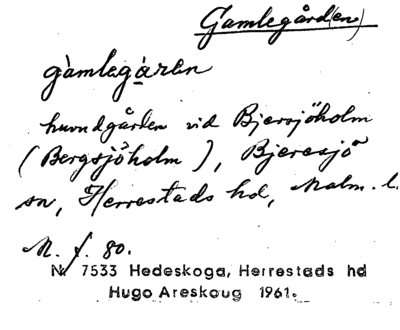 Gamlegård(en)
gàmlegárln
huvudgården vid Bjersjöholm
(Bergsjöholm), Bjeresjö
sn, Herrestads hd, Malm. l.
M. f. 80.
N. 7533 Hedeskoga, Herrestads hd
Hugo Areskoug 1961.